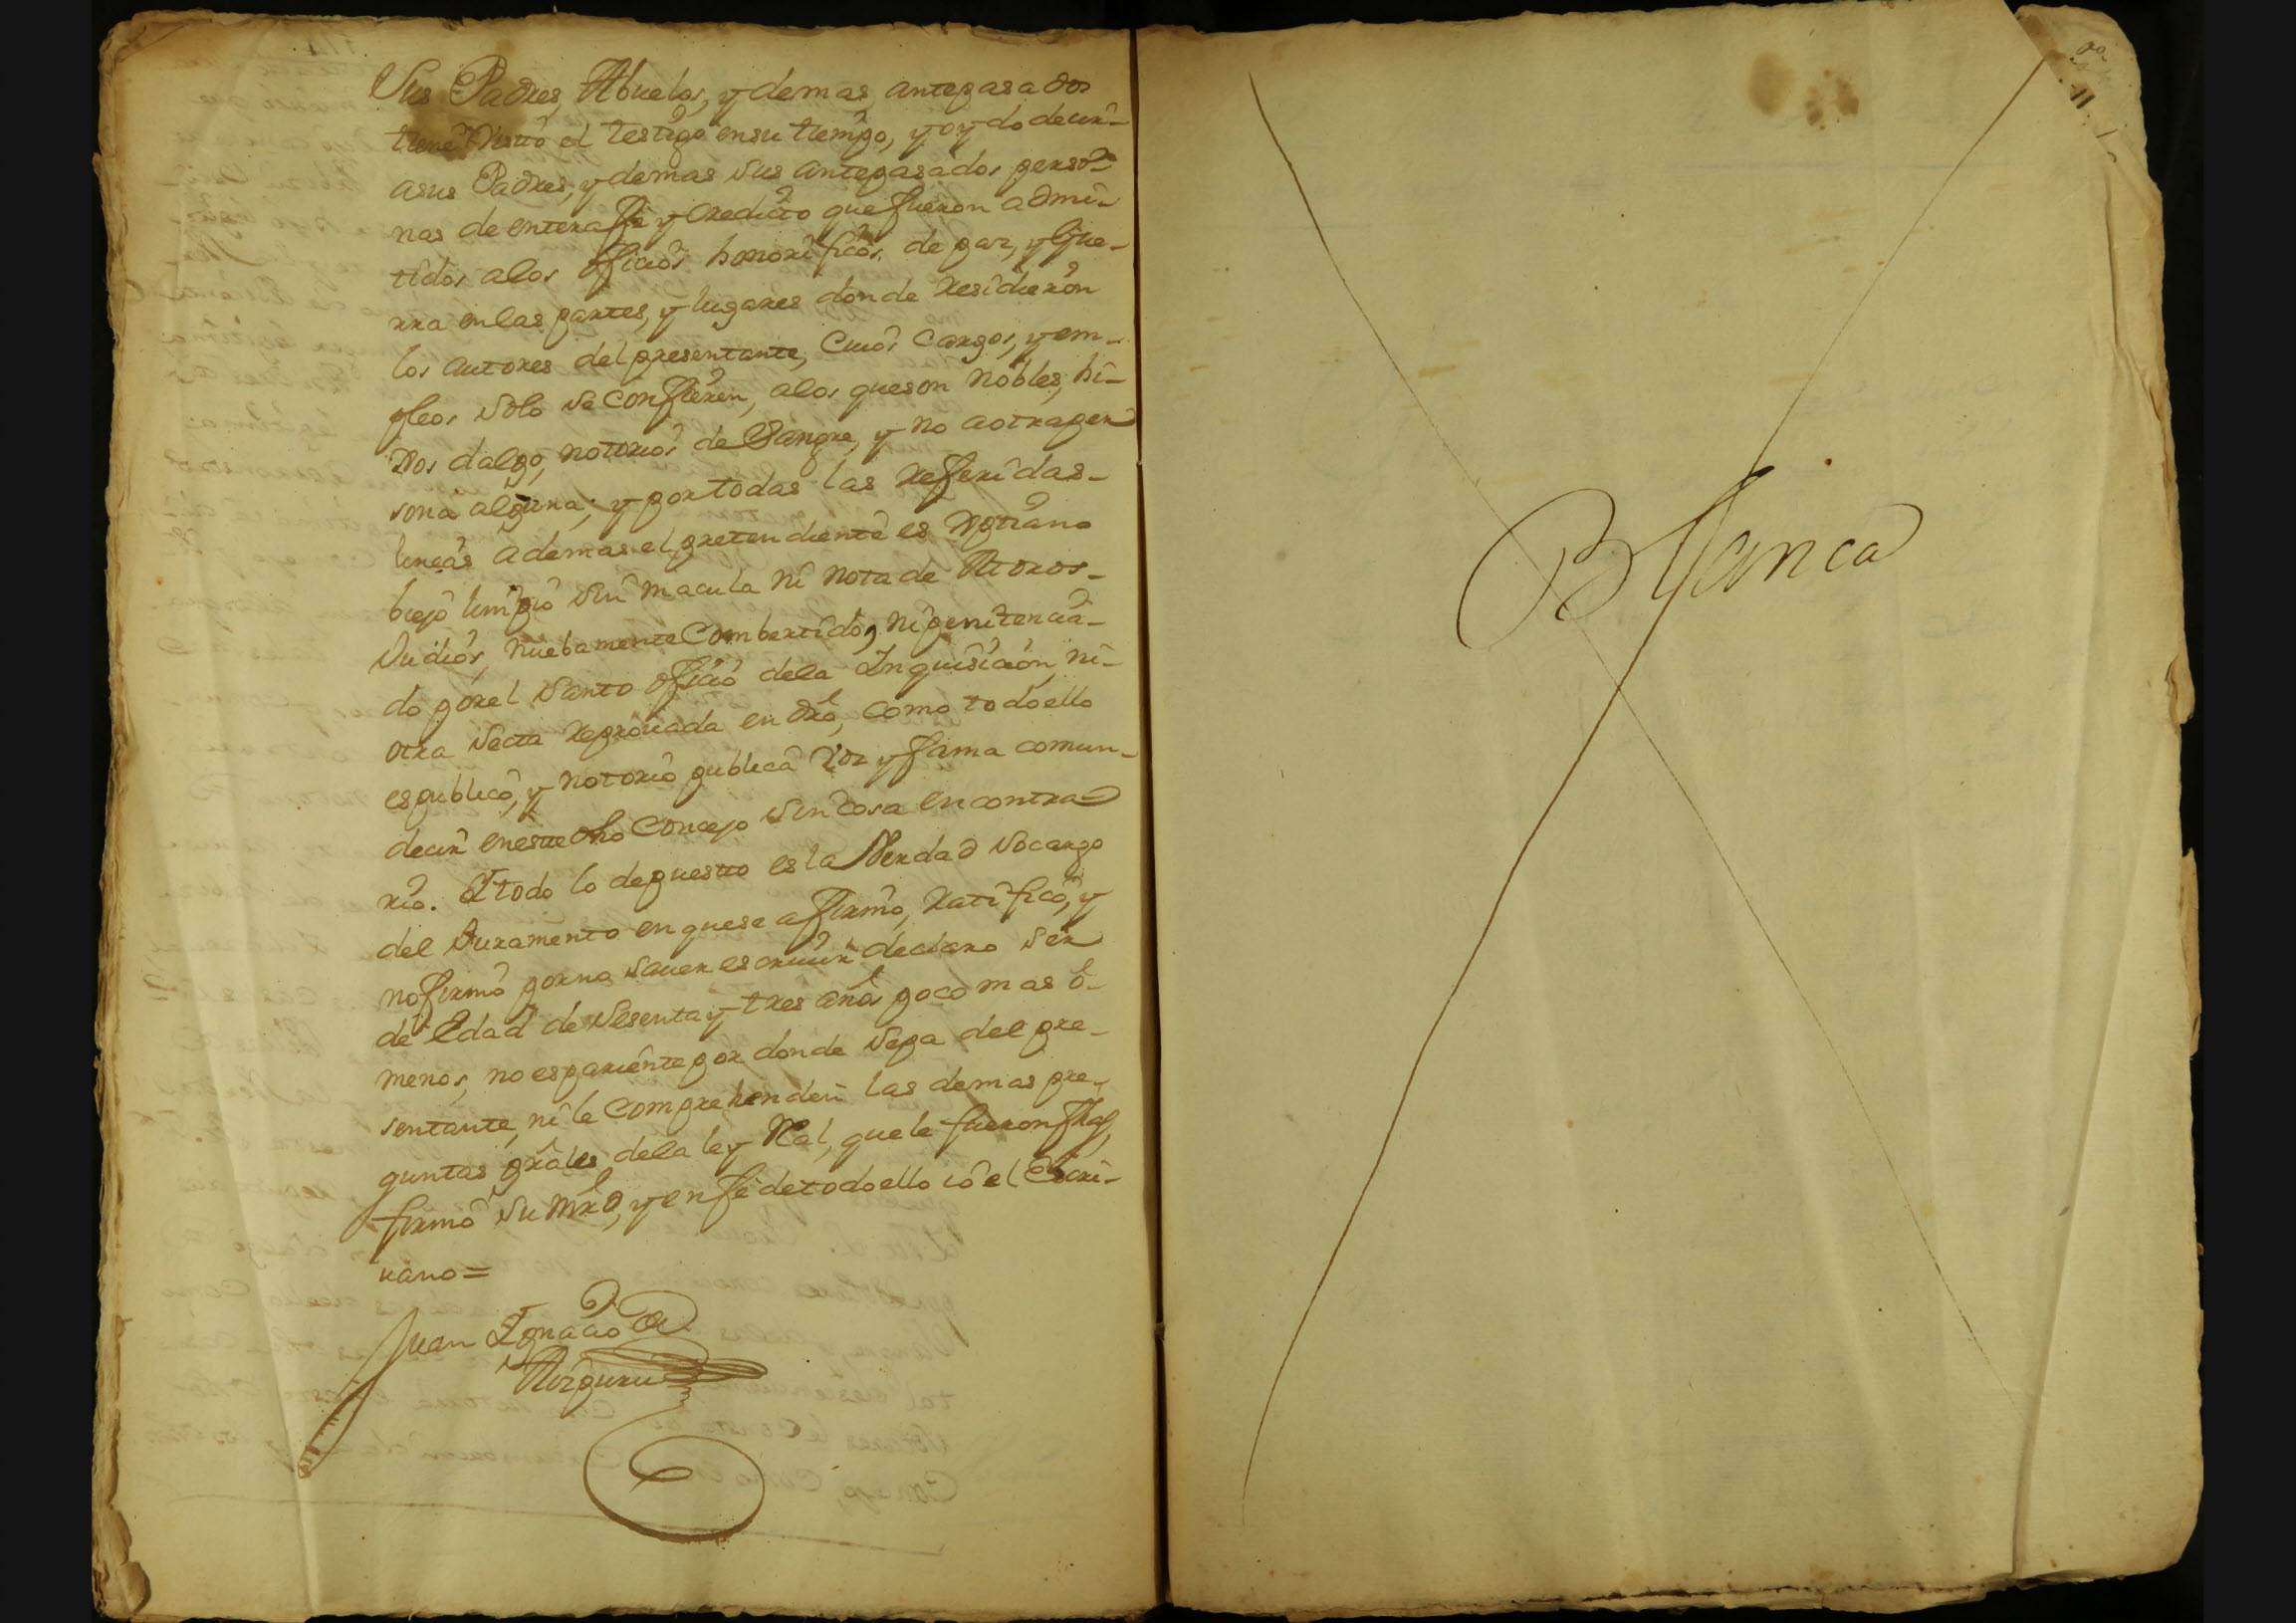 Sus Padres, Abuelos, y demas antepasados
tiene visto el testigo en su tiempo, y oydo decir
asus Padres, y demas sus antepasados perso-
nas de entera fe y credito que fueron admi-
tidos alos oficios honorificos de paz, y Gue-
rra en las partes, y lugares donde residieron
los autores del presentante, Cuios Cargos, y em-
pleos solo se confieren, alos que son nobles, hi-
Jos dalgo, notorios de Sangre, y no aotra per
sona alguna; y por todas las referidas-
lineas ademas el pretendiente es Xptiano
biejo limpio sin macula ni nota de Moros-
Judios, nuebamente Combertido, ni penitencia-
do por el santo oficio dela Inquisicion, ni-
otra secta reprovada en dro, como todo ello
es publico, y notorio publica voz y fama comun-
decir en este dho Concejo sin cosa en contra
rio. Y todo lo depuesto es la Verdad so cargo
del Juramento en que se afirmo, ratifico, y
no firmo por no saver escriuir declaro ser
de Edad de sesenta y tres años poco mas o-
menos, no es pariente por donde sepa del pre-
sentante, ni le Comprehenden las demas pre-
guntas grâles dela ley Ral, que le fueron fhas,
firmo su mrd, y en fe de todo ello io el Escri-
uano=
Juan Ignacio de
Aizpuru
Blanca